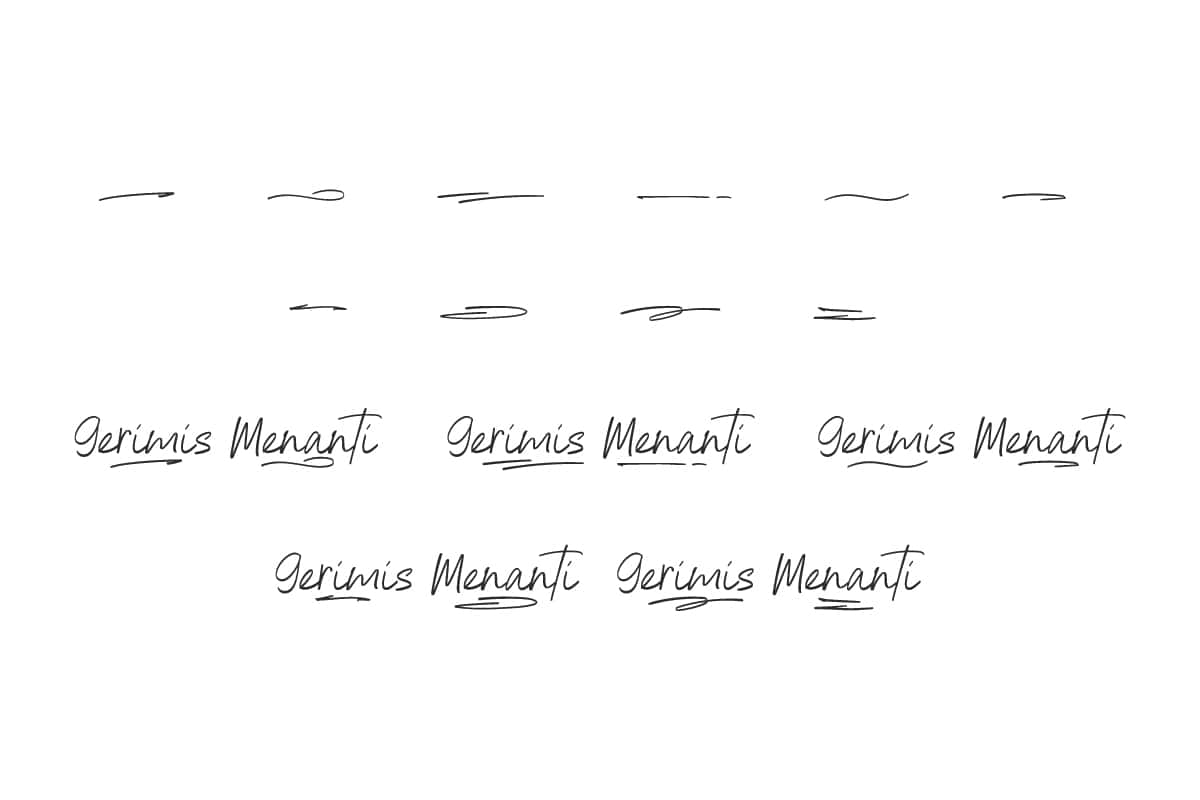 Gerimis Menanti Gerimis Menanti Gerimis Menanti
Gerimis Menanti Gerimis Menanti